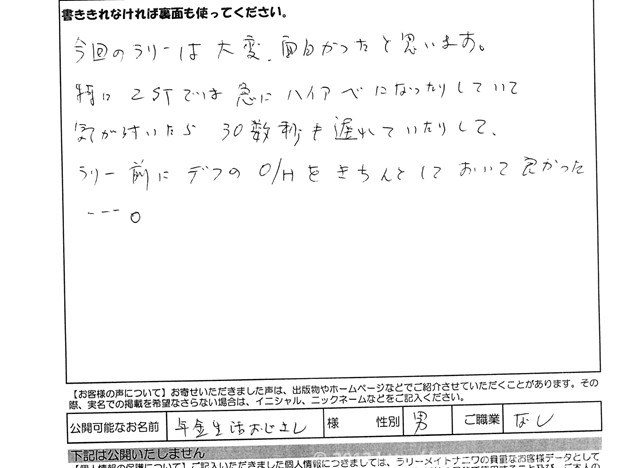 書ききれなければ裏面も使ってください。
今回のラリーは大変、面白かったと思います。
特に2STでは急にハイアベになったりしていて
気が付いたら30数秒も遅れていたりして、
ラリー前にデフのO/Hをきちんとしておいて良かった
---。
【お客様の声について】お寄せいただきました声は、出版物やホームページなどでご紹介させていただくことがあります。その
際、実名での掲載を希望なさらない場合は、イニシャル、ニックネームなどをご記入ください。
公開可能なお名前 年金生活おじさん 様 性別 男 ご職業 なし
下記は公開いたしません
【個人情報の保護について】ご記入いただきました個人情報につきましては、ラリーメイトナニワの貴重なお客様データとして